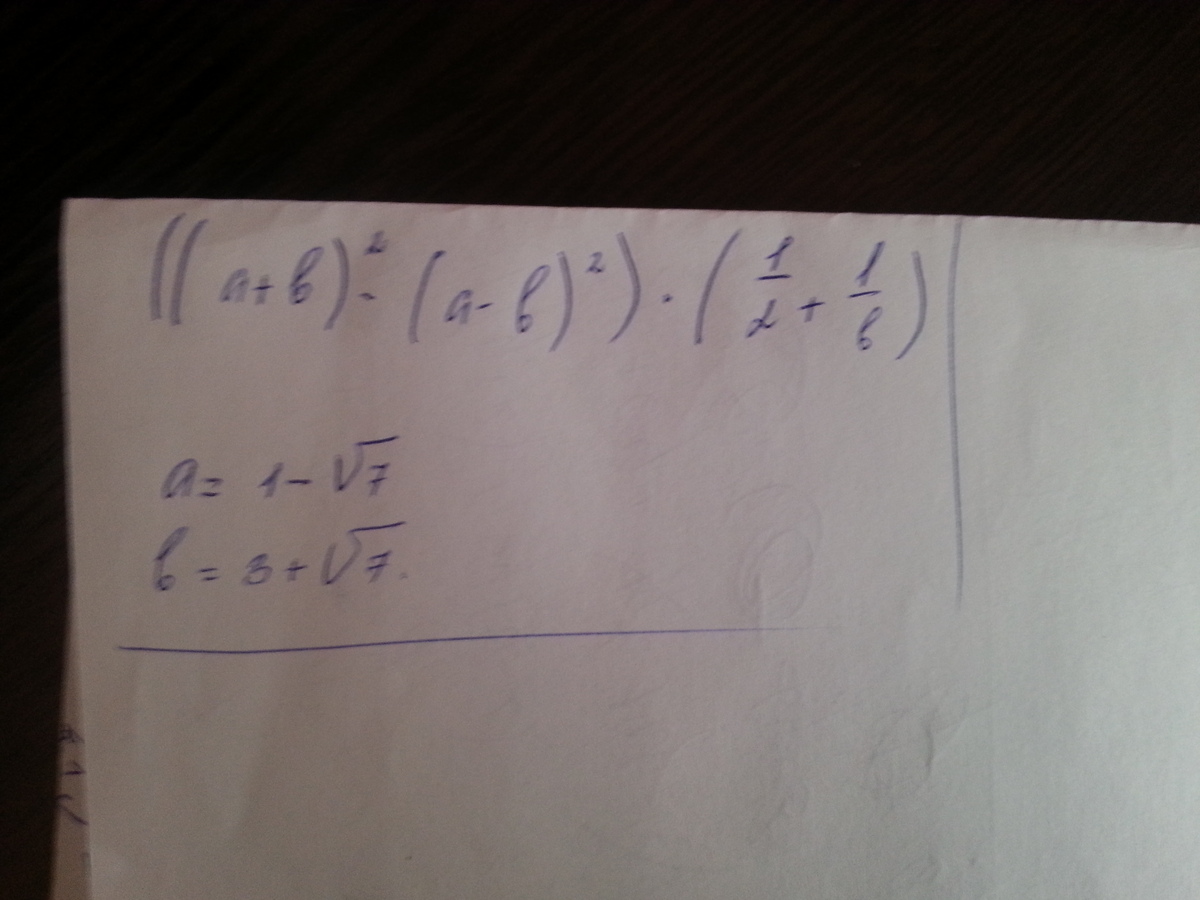 ((a+b)² - (a-b)²) · (1/2 + 1/b)
a = 1 - √7
b = 3 + √7.